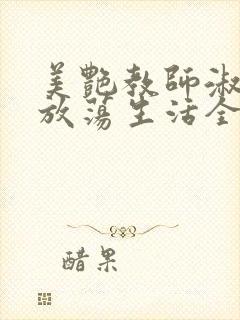 美艷教師淑
放蕩生活全
醋果